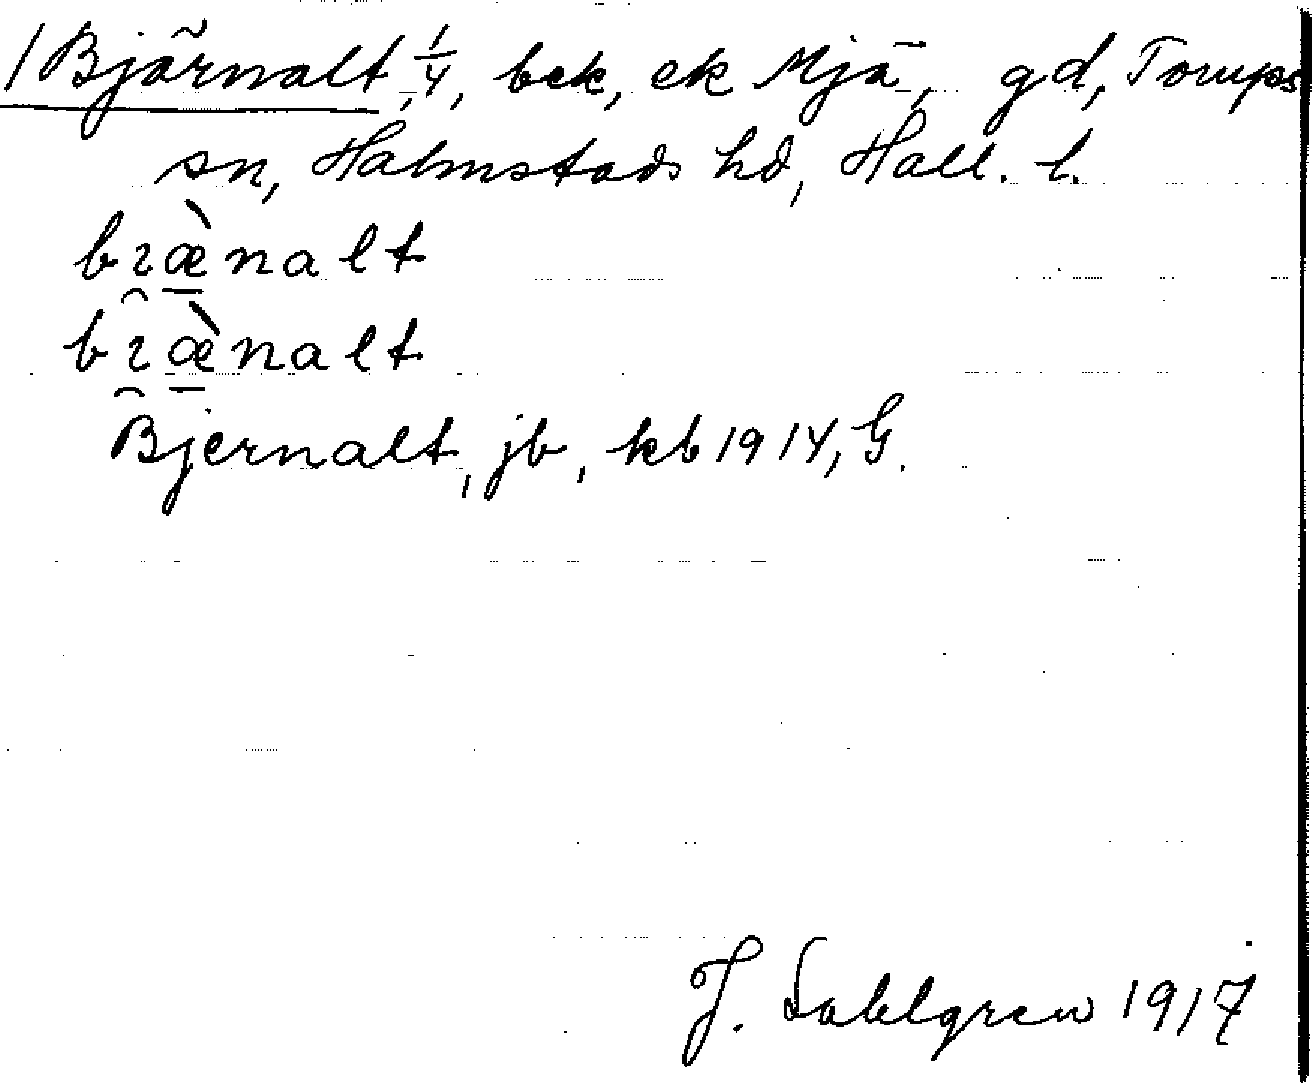 1 Bjärnalt, 1/4, bek, ek Mjä, gd, Torups
sn, Halmstads hd, Hall. l.
bɿæ̀nalt
bɿæ̀nalt
Bjernalt, jb, kb 1914, G.
J. Sahlgren 1917